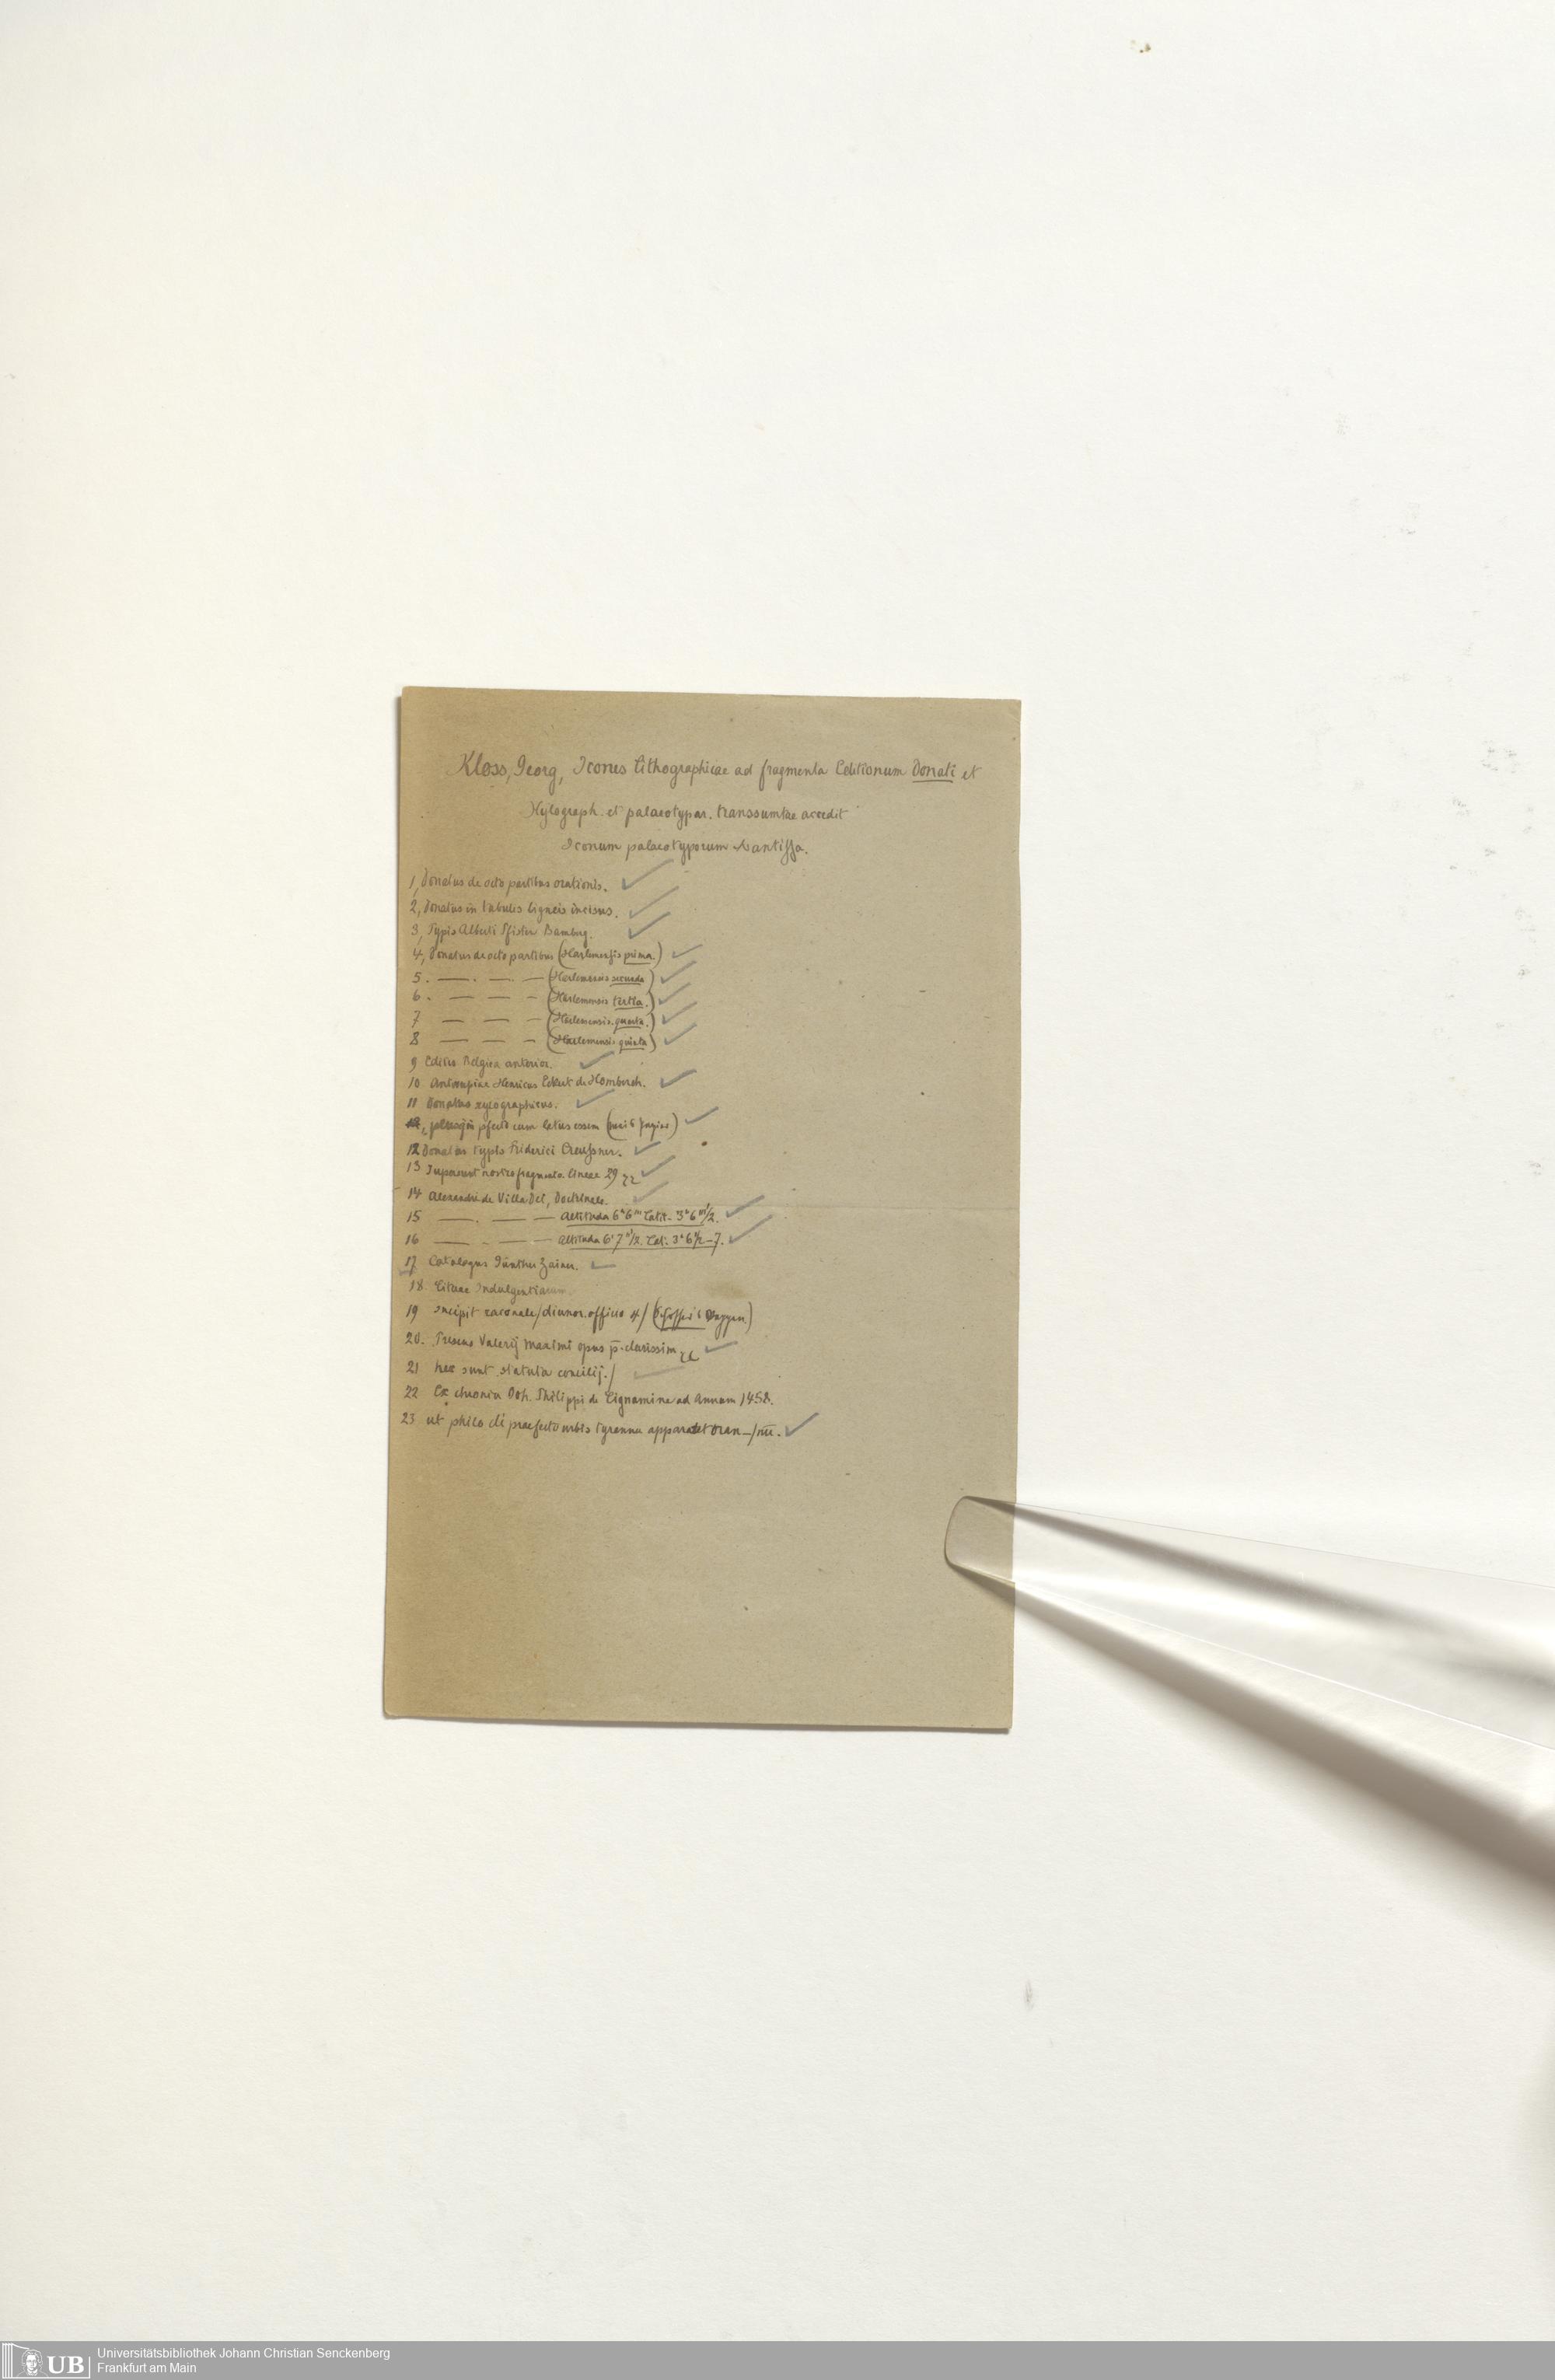 Kloss, Georg, Icones lithographicae ad fragmenta Editionum Donati et
Xylograph. et palaeotypar. transsumtae accedit
Iconum palaeotyporum Mantissa.
1, Donatus de octo partibus orationis.
2, Donatus in tabulis ligneis incisus.
3, Typis Alberti Pfister Bambrg.
4, Donatus de octo partibus (Harlemensis prima.)
5. — . — . — (Harlemensis secunda)
6. — — — (Harlemensis tertia.)
7 — — — (Harlemensis quarta.)
8 — — — (Harlemensis quinta)
9 Editio Belgica anterior.
10 Antwerpiae Henricus Eckert de Hombirch.
11 Donatus xylographicus.
cum letus essem
12 Donatus typis Friderici Creussner.
13 Supersunt nostro fragmento lineae 29
14 Alexandri de Villa Dei, Doctrinale.
15 — . — — Altitudo 6" 6''' Latit. 3" 6'''1/2.
16 — . — — Altitudo 6" 7'''1/2. Lat. 3" 6 1/2 – 7.
17 Catalogus Günther Zainer.
18. Litterae Indulgentiarum.
19 Incipit racionale / diuinor. officio
20. Valerij Maximi opus p̄clarissim
21 hec sunt statuta concilij. /
22 Ex chronica Joh. Philippi de Lignamine ad Annum 1458.
23 ut philo di praefecto urbis tyranno
Universitätsbibliothek Johann Christian Senckenberg
UB Frankfurt am Main